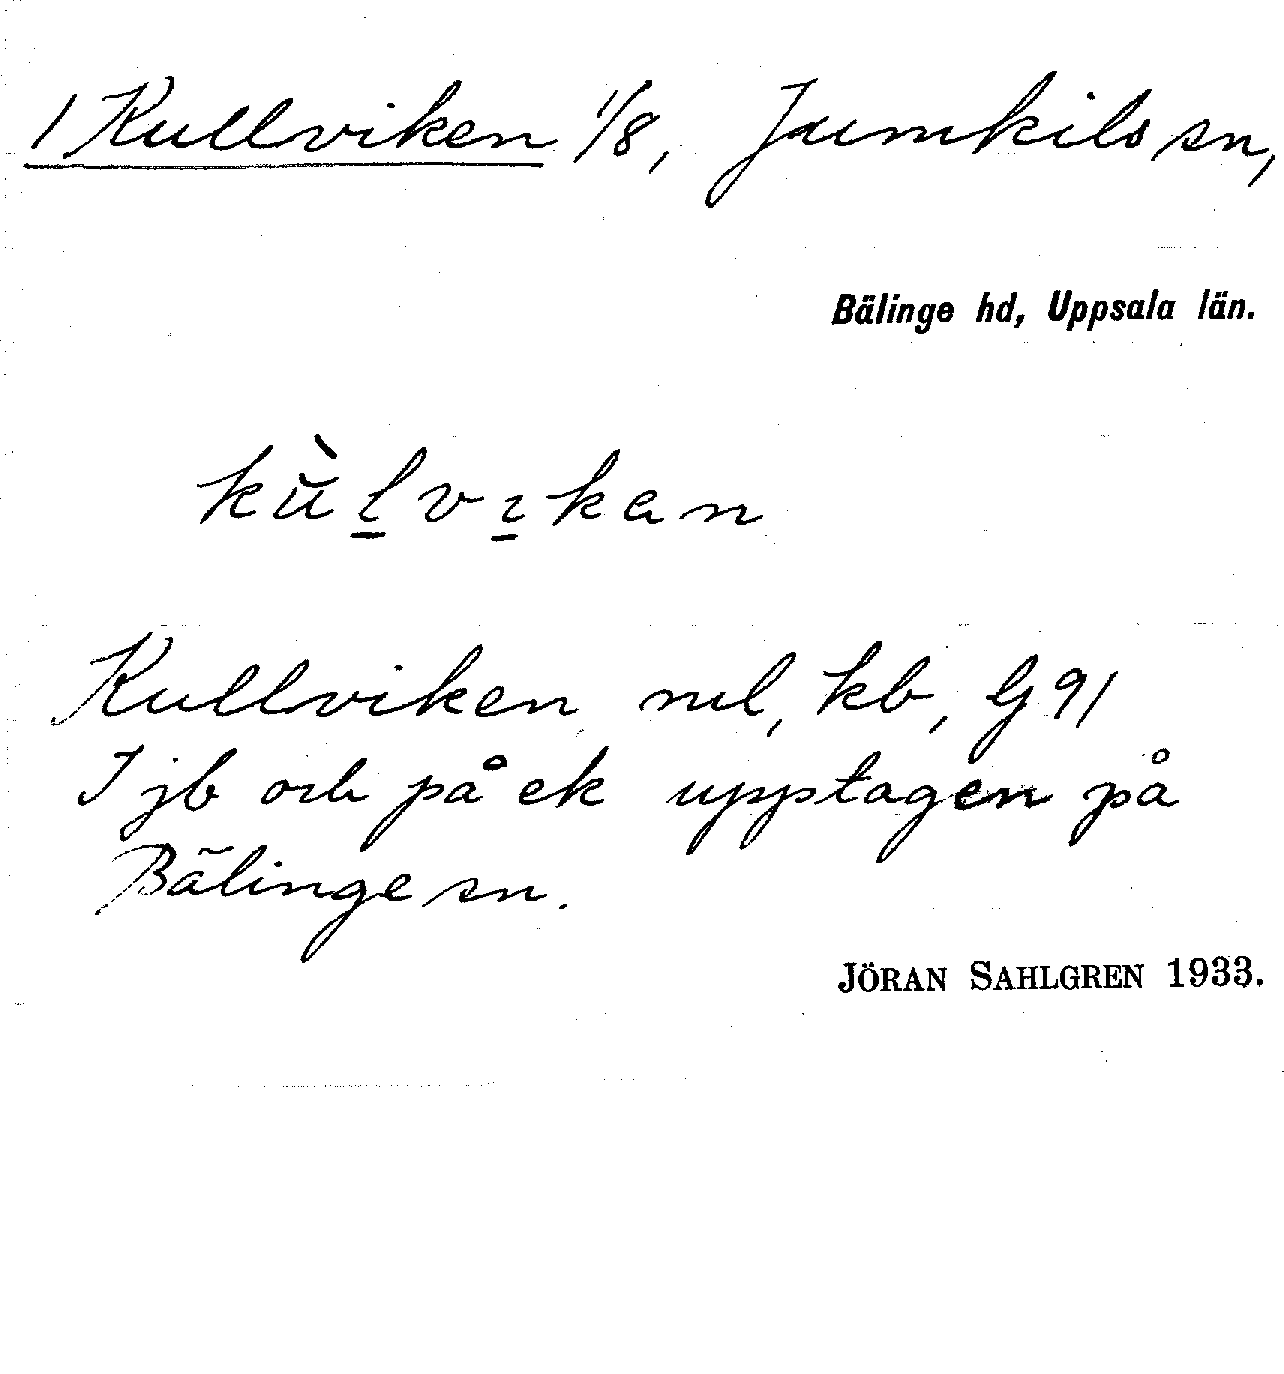 1 Kullviken 1/8, Jumkils sn,
Bälinge hd, Uppsala län.
kùlvɩkan
Kullviken nul, kb, G 91
I jb och på ek upptagen på
Bälinge sn.
JÖRAN SAHLGREN 1933.